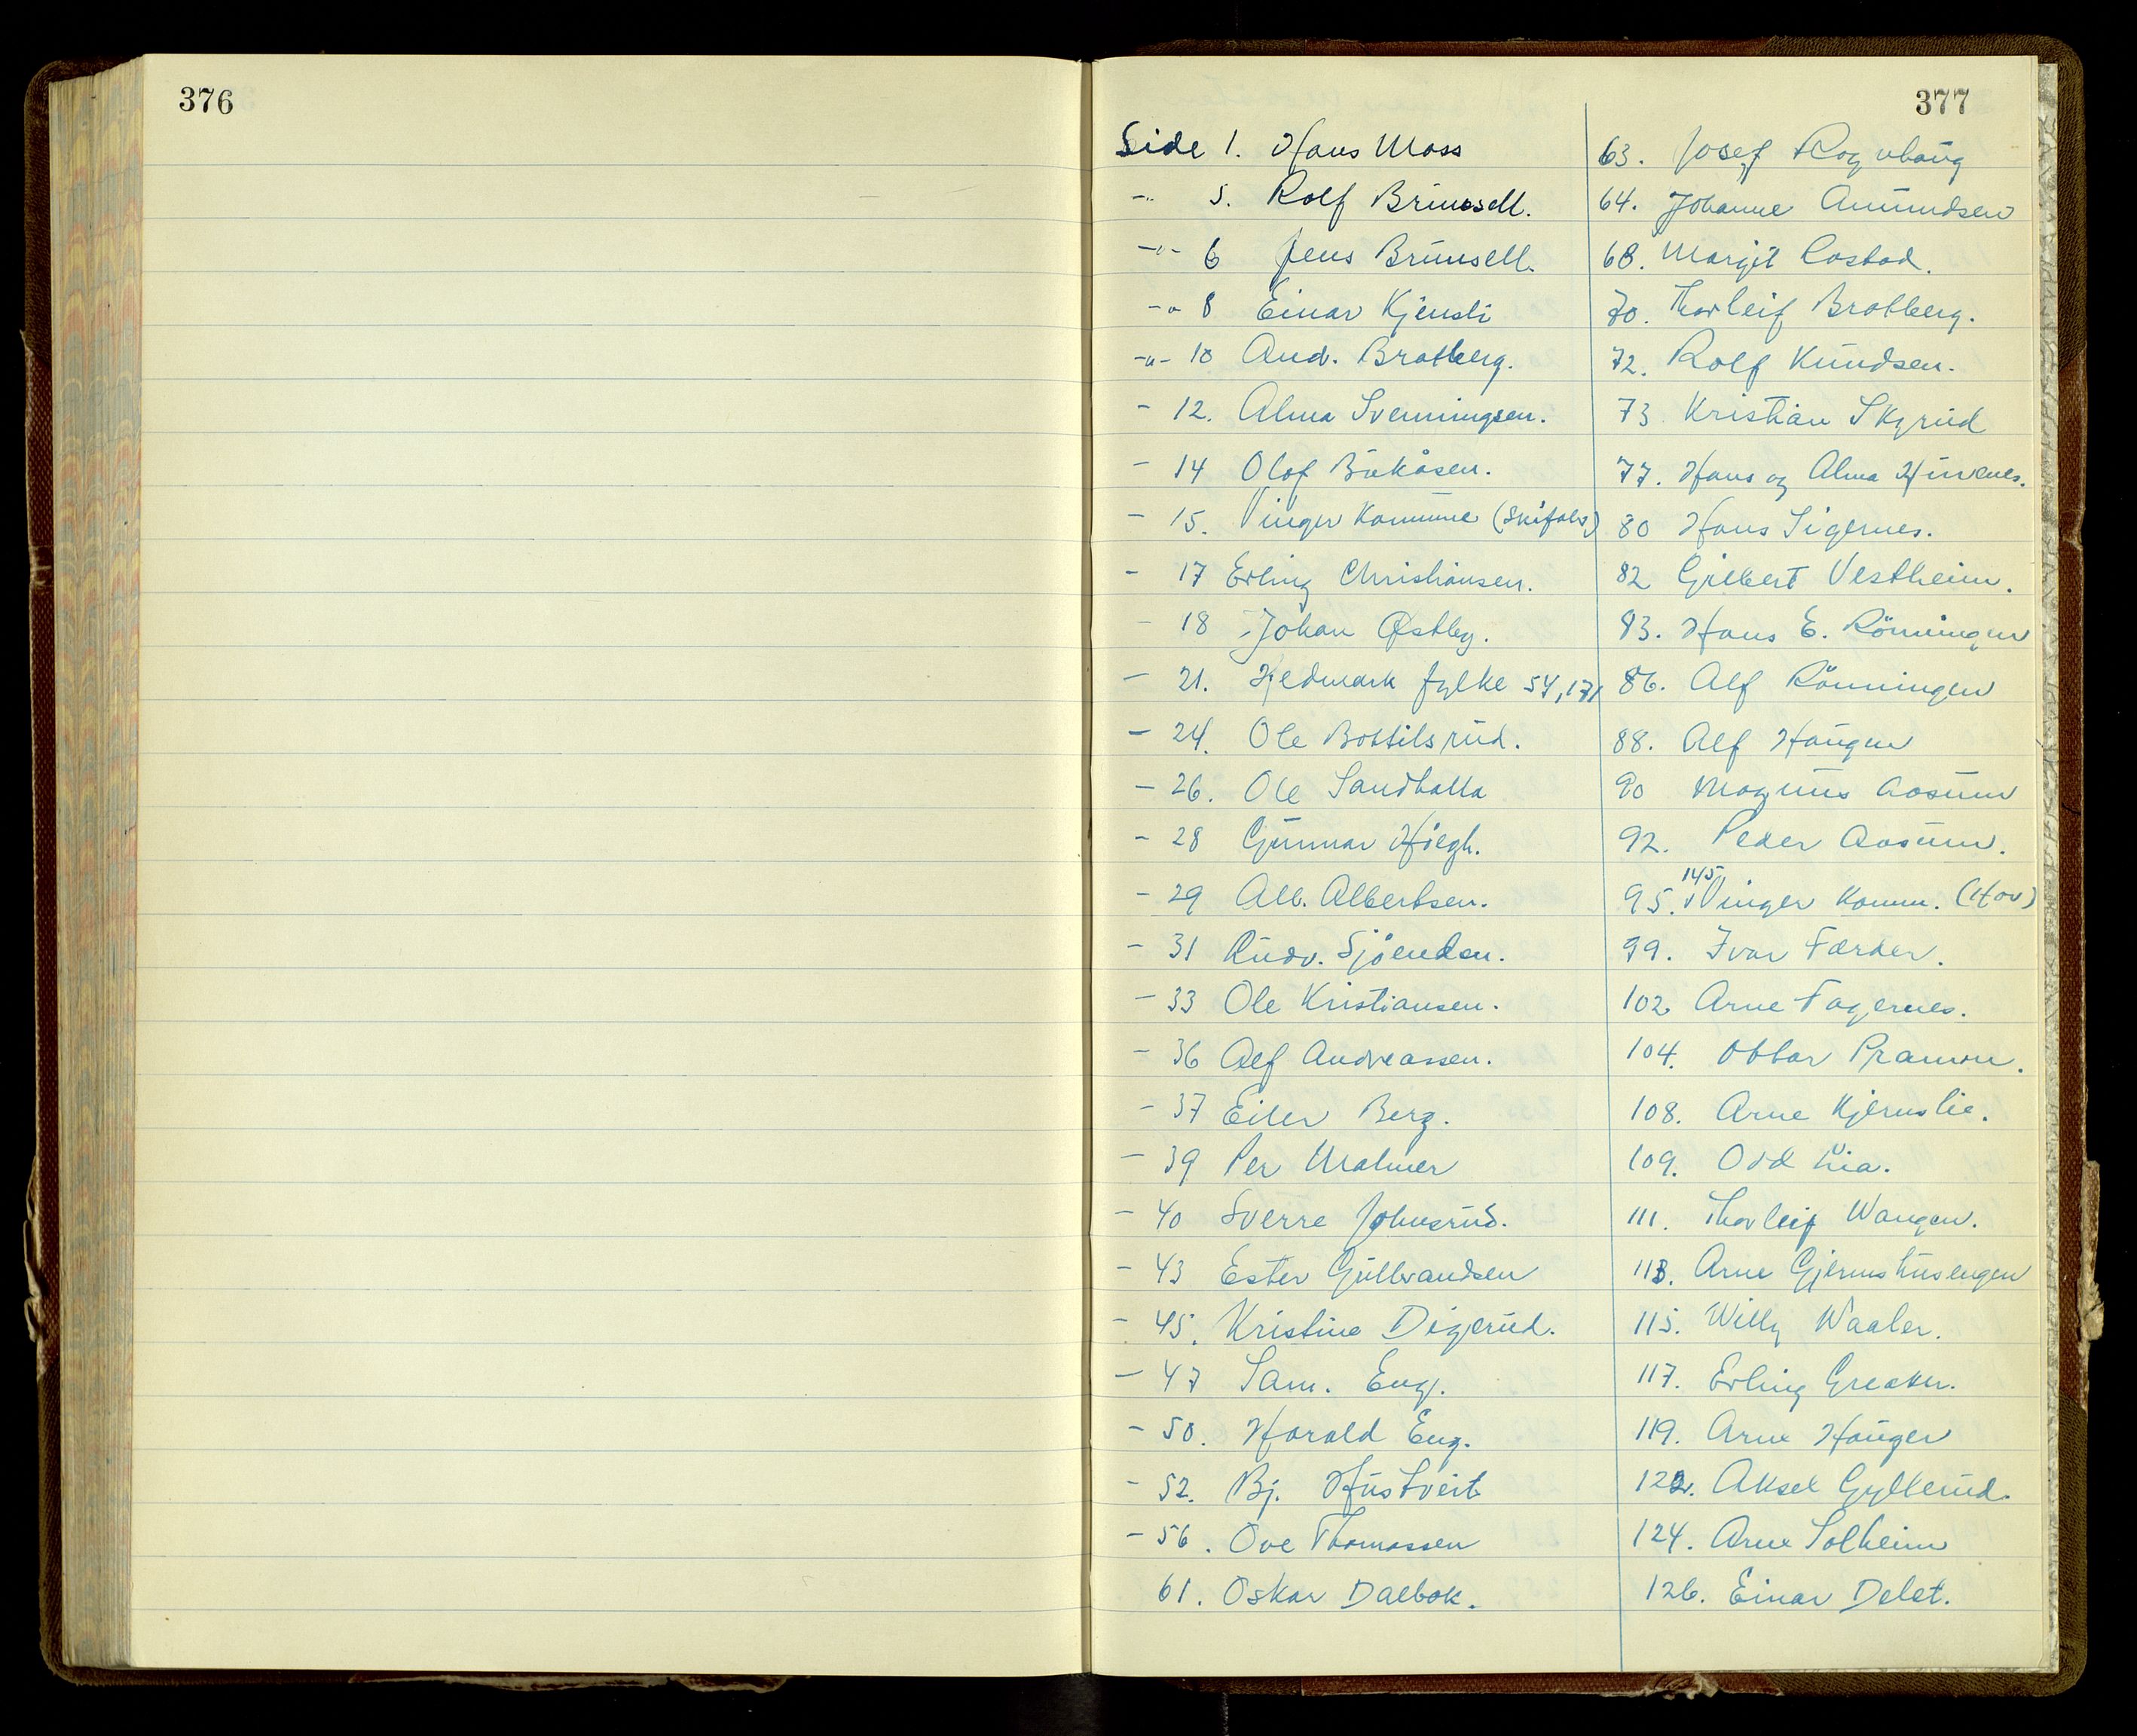 376
377
Side 1. Hans Moss
-"- 5. Rolf Brunsell.
-"- 6 Jens Brunsell.
-"- 8 Einar Kjensli
-"- 10 And. Bratberg.
- 12. Alma Svenningsen.
- 14 Olof Buråsen.
- 15. Vinger Kommune (Skifabr)
- 17 Erling Christiansen.
- 18 Johan Østby.
- 21. Hedmark fylke 54, 171
- 24. Ole Bottilsrud.
- 26. Ole Sandbakka
- 28 Gunnar Høegh.
- 29 Alb. Albertsen.
- 31 Rudv. Sjøenden.
- 33 Ole Kristiansen.
- 36 Alf Andreassen.
- 37 Eiler Berg.
- 39 Per Malmer
- 40 Sverre Johnsrud.
- 43 Ester Gulbrandsen
- 45. Kristine Digerud.
- 47 Sam. Eng.
- 50. Harald Eng.
- 52. Bj. Hustveit
- 56. Ove Thomassen
61. Oskar Dalbak.
63. Josef Rognhaug
64. Johanne Amundsen
68. Margit Rastad.
70. Thorleif Bratberg.
72. Rolf Knudsen.
73 Kristian Skyrud
77. Hans og Alma Hurenes.
80 Hans Sigernes.
82 Gilbert Vestheim.
83. Hans E. Rönningen
86. Alf Rönningen
88. Alf Haugen
90 Magnus Aasum
92. Peder Aasum.
95. 145, Vinger Komm. (Hov)
99. Ivar Færder.
102 Arne Fagernes.
104. Ottar Pramm.
108. Arne Kjernslie.
109. Odd Lia.
111. Thorleif Wangen.
113. Arne Gjermshusengen
115. Willy Waaler.
117. Erling Greaker.
119. Arne Hauger
122. Aksel Gylterud.
124. Arne Solheim
126. Einar Delet.